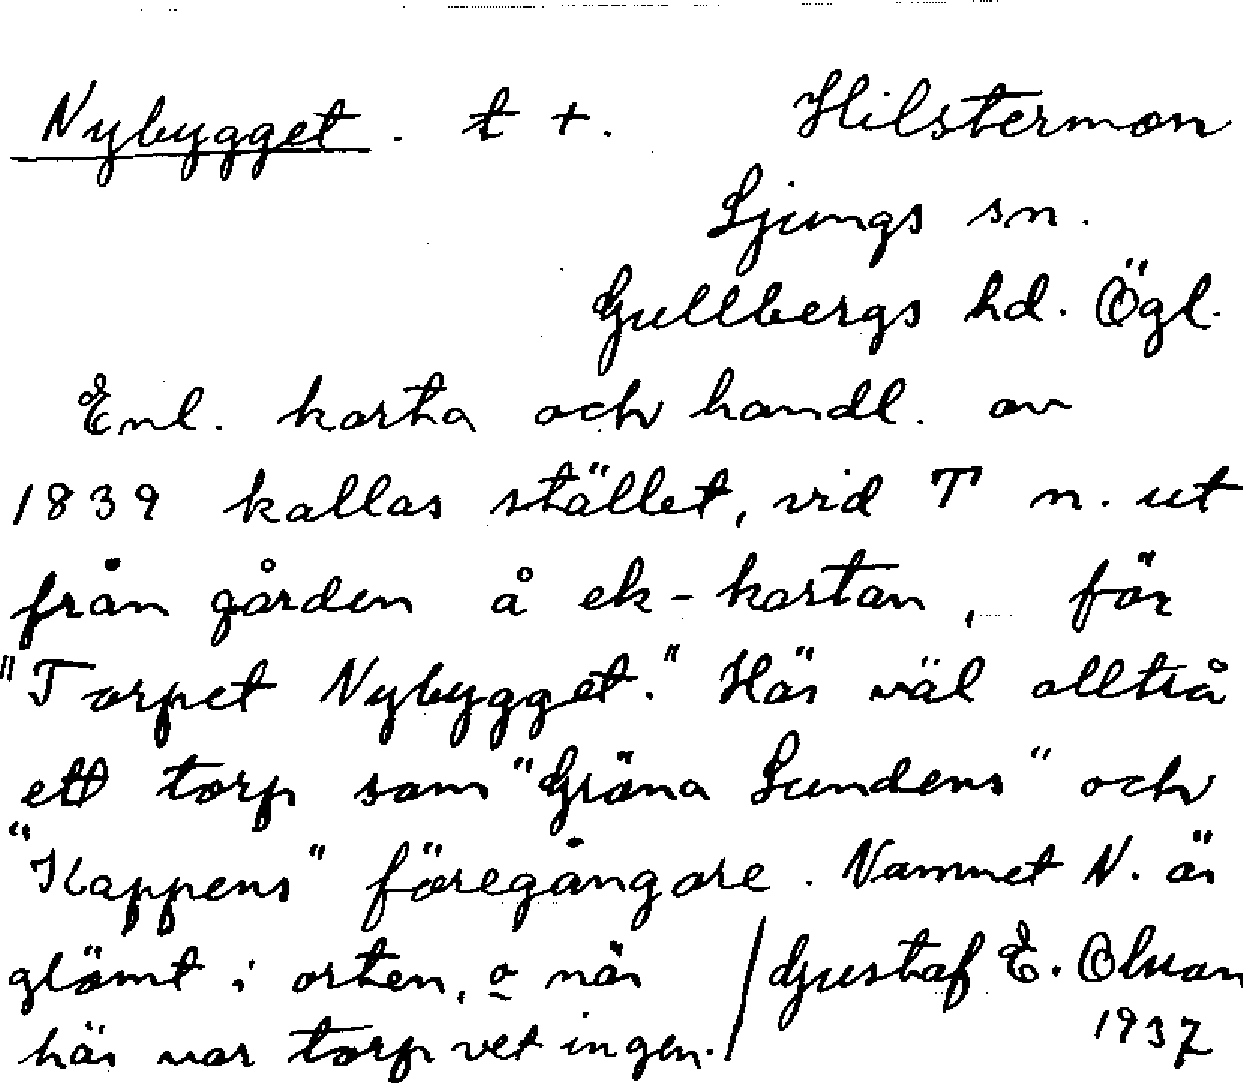 Nybygget. t +. Hilstermon
Ljungs sn.
Gullbergs hd. Ögl.
Enl. karta och handl. av
1839 kallas stället, vid T n. ut
från gården å ek-kartan, för
"Torpet Nybygget." Här väl alltså
ett torp som "Gröna Lundens" och
"Kappens" föregångare. Namnet N. är
glömt i orten, o när
här var torp vet ingen. / Gustaf E. Olson
1937